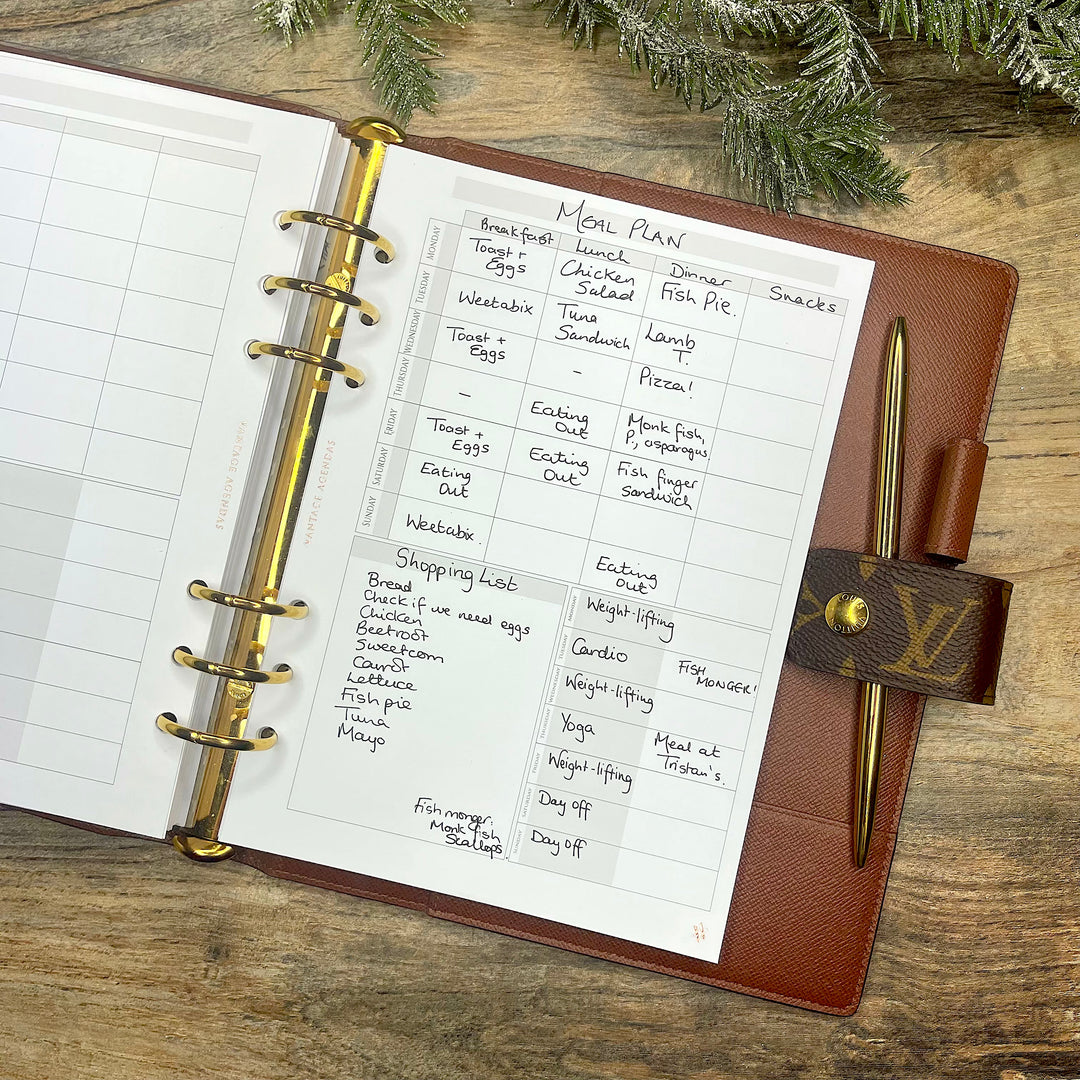 MEAL PLAN
Breakfast Lunch Dinner Snacks
MONDAY
Toast +
Eggs
Chicken
Salad
Fish Pie.
TUESDAY
Weetabix
Tuna
Sandwich
Lamb
T.
WEDNESDAY
Toast +
Eggs
-
Pizza!
THURSDAY
-
Eating
Out
Monk fish,
P., asparagus
FRIDAY
Toast +
Eggs
Eating
Out
Fish finger
Sandwich
SATURDAY
Eating
Out
SUNDAY
Weetabix.
Eating
Out
Shopping List
Bread
Check if we need eggs
Chicken
Beetroot
Sweetcorn
Carrot
Lettuce
Fish pie
Tuna
Mayo
Fish monger:
Monk fish
Scallops
MONDAY
Weight-lifting
TUESDAY
Cardio
FISH
MONGER!
WEDNESDAY
Weight-lifting
THURSDAY
Yoga
Meal at
Tristan's.
FRIDAY
Weight-lifting
SATURDAY
Day off
SUNDAY
Day off
VANTAGE AGENDAS
VANTAGE AGENDAS
LOUIS
VUITTON
LV